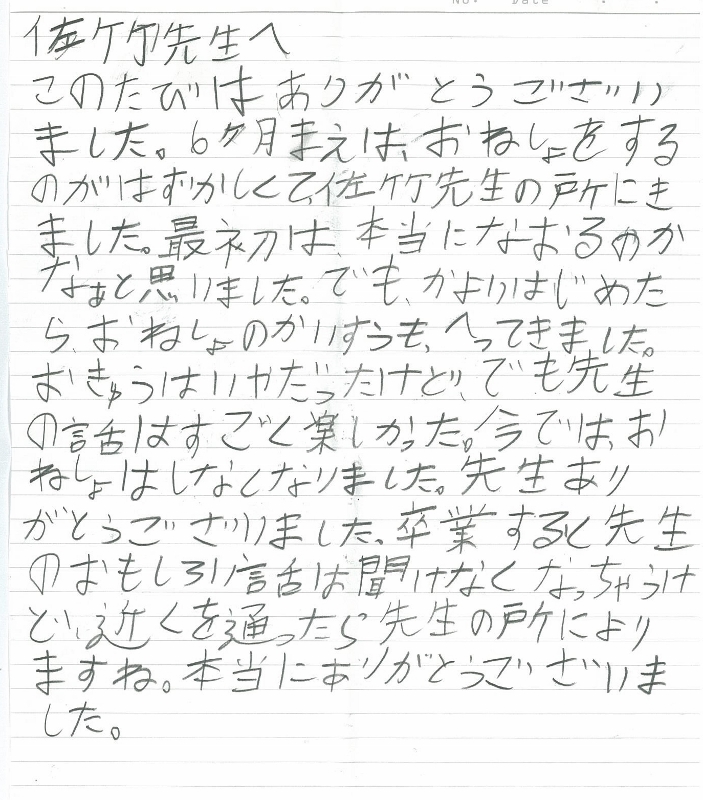 No. Date
佐竹先生へ
このたびはありがとうございい
ました。6ケ月まえは、おねしょをする
のがはずかしくて、佐竹先生の所にき
ました。最初は、本当になおるのか
なぁと思いました。でも、かよいはじめた
ら、おねしょのかいすうも、へってきました。
おきゅうはいやだったけど、でも先生
の話はすごく楽しかった。今では、お
ねしょはしなくなりました。先生あり
がとうございいました、卒業すると先生
のおもしろい話は聞けなくなっちゃうけ
ど、近くを通ったら先生の所により
ますね。本当にありがとうございいま
した。